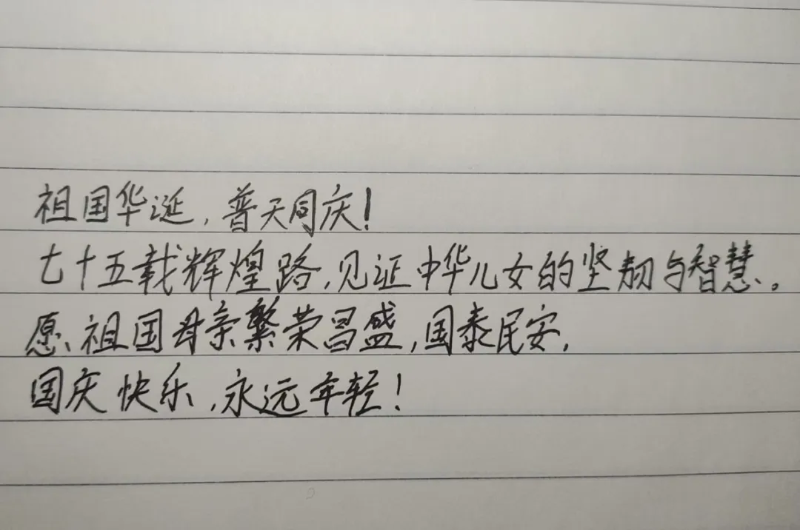 祖国华诞，普天同庆！
七十五载辉煌路，见证中华儿女的坚韧与智慧。
愿祖国母亲繁荣昌盛，国泰民安，
国庆快乐，永远年轻！